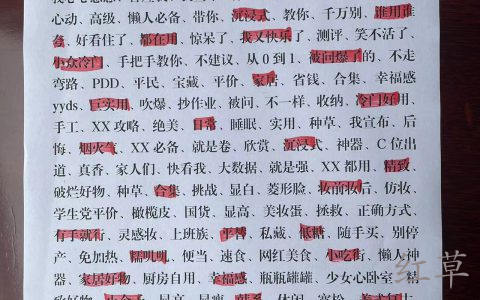 心动、高级、懒人必备、带你、沉浸式、教你、千万别、谁用谁
、好看住了、都在用、惊呆了、我又快乐了、测评、笑不活了、
小众冷门、手把手教你、不建议、从0到1、被问爆了的、不走
弯路、PDD、平民、宝藏、平价、家居、省钱、合集、幸福感
yyds、巨实用、吹爆、抄作业、被问、不一样、收纳、冷门好用、
手工、XX攻略、绝美、日常、睡眠、实用、种草、我宣布、后
悔、烟火气、XX必备、就是卷、欣赏、沉浸式、神器、C位出
道、真香、家人们、快看我、大数据、就是强、XX都用、精致、
破烂好物、种草、合集、挑战、显白、菱形脸、妆前妆后、仿妆、
学生党平价、橄榄皮、国货、显高、美妆蛋、拯救、正确方式、
有手就行、灵感妆、上班族、平替、私藏、低糖、随手买、别停
产、免加热、糯叽叽、便当、速食、网红美食、小吃街、懒人神
器、家居好物、厨房自用、幸福感、瓶瓶罐罐、少女心卧室、精
红草